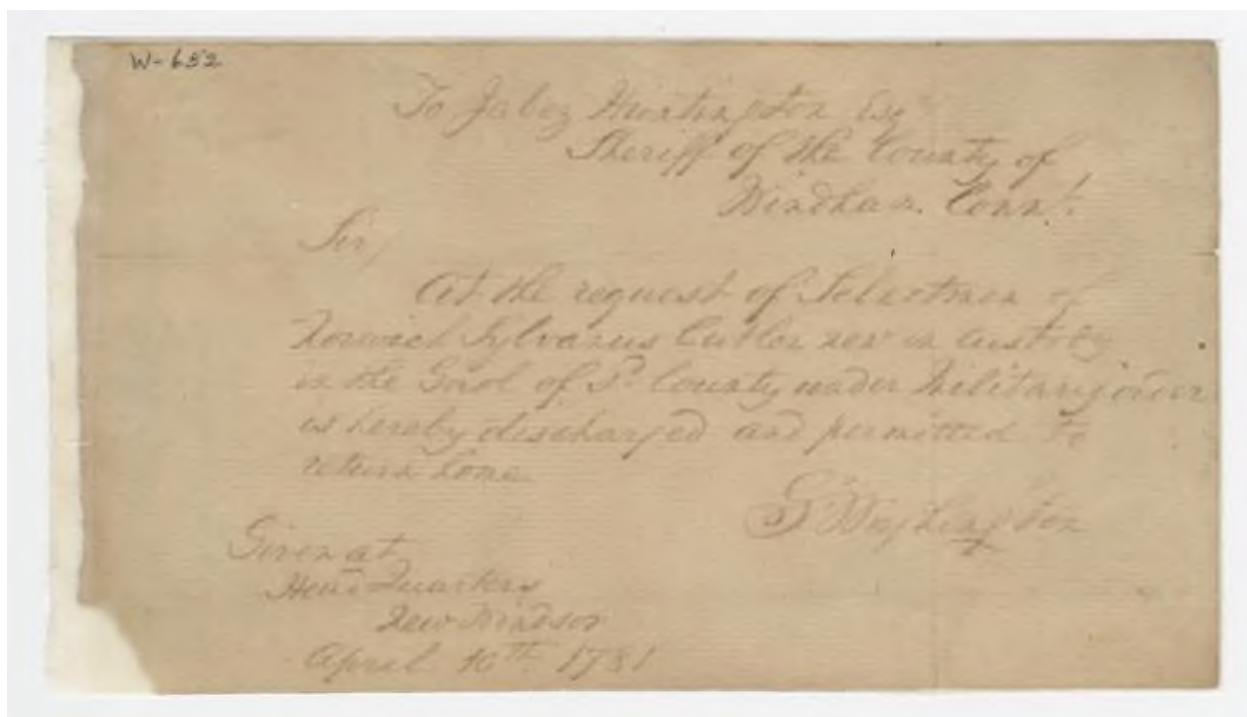 W-652
To Jabez Huntington Esqr
Sheriff of the County of
Windham Connt.
Sir,
At the request of Selectmen of
Norwich Sylvanus Cutler now in custody
in the Goal of Sd. County under Military order
is hereby discharged and permitted to
return home
Go Washington
Given at
Head Quarters
New Windsor
April 10th 1781